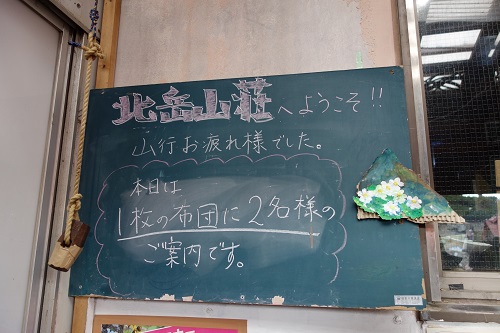 北岳山荘へようこそ!!
山行お疲れ様でした。
本日は
1枚の布団に2名様の
ご案内です。